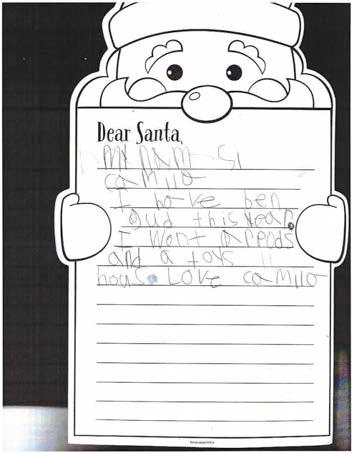 Dear Santa,
MY NAM SI
camilo
I have ben
gud this year.
I wont airpods
and a toys
hous. LOVE camilo